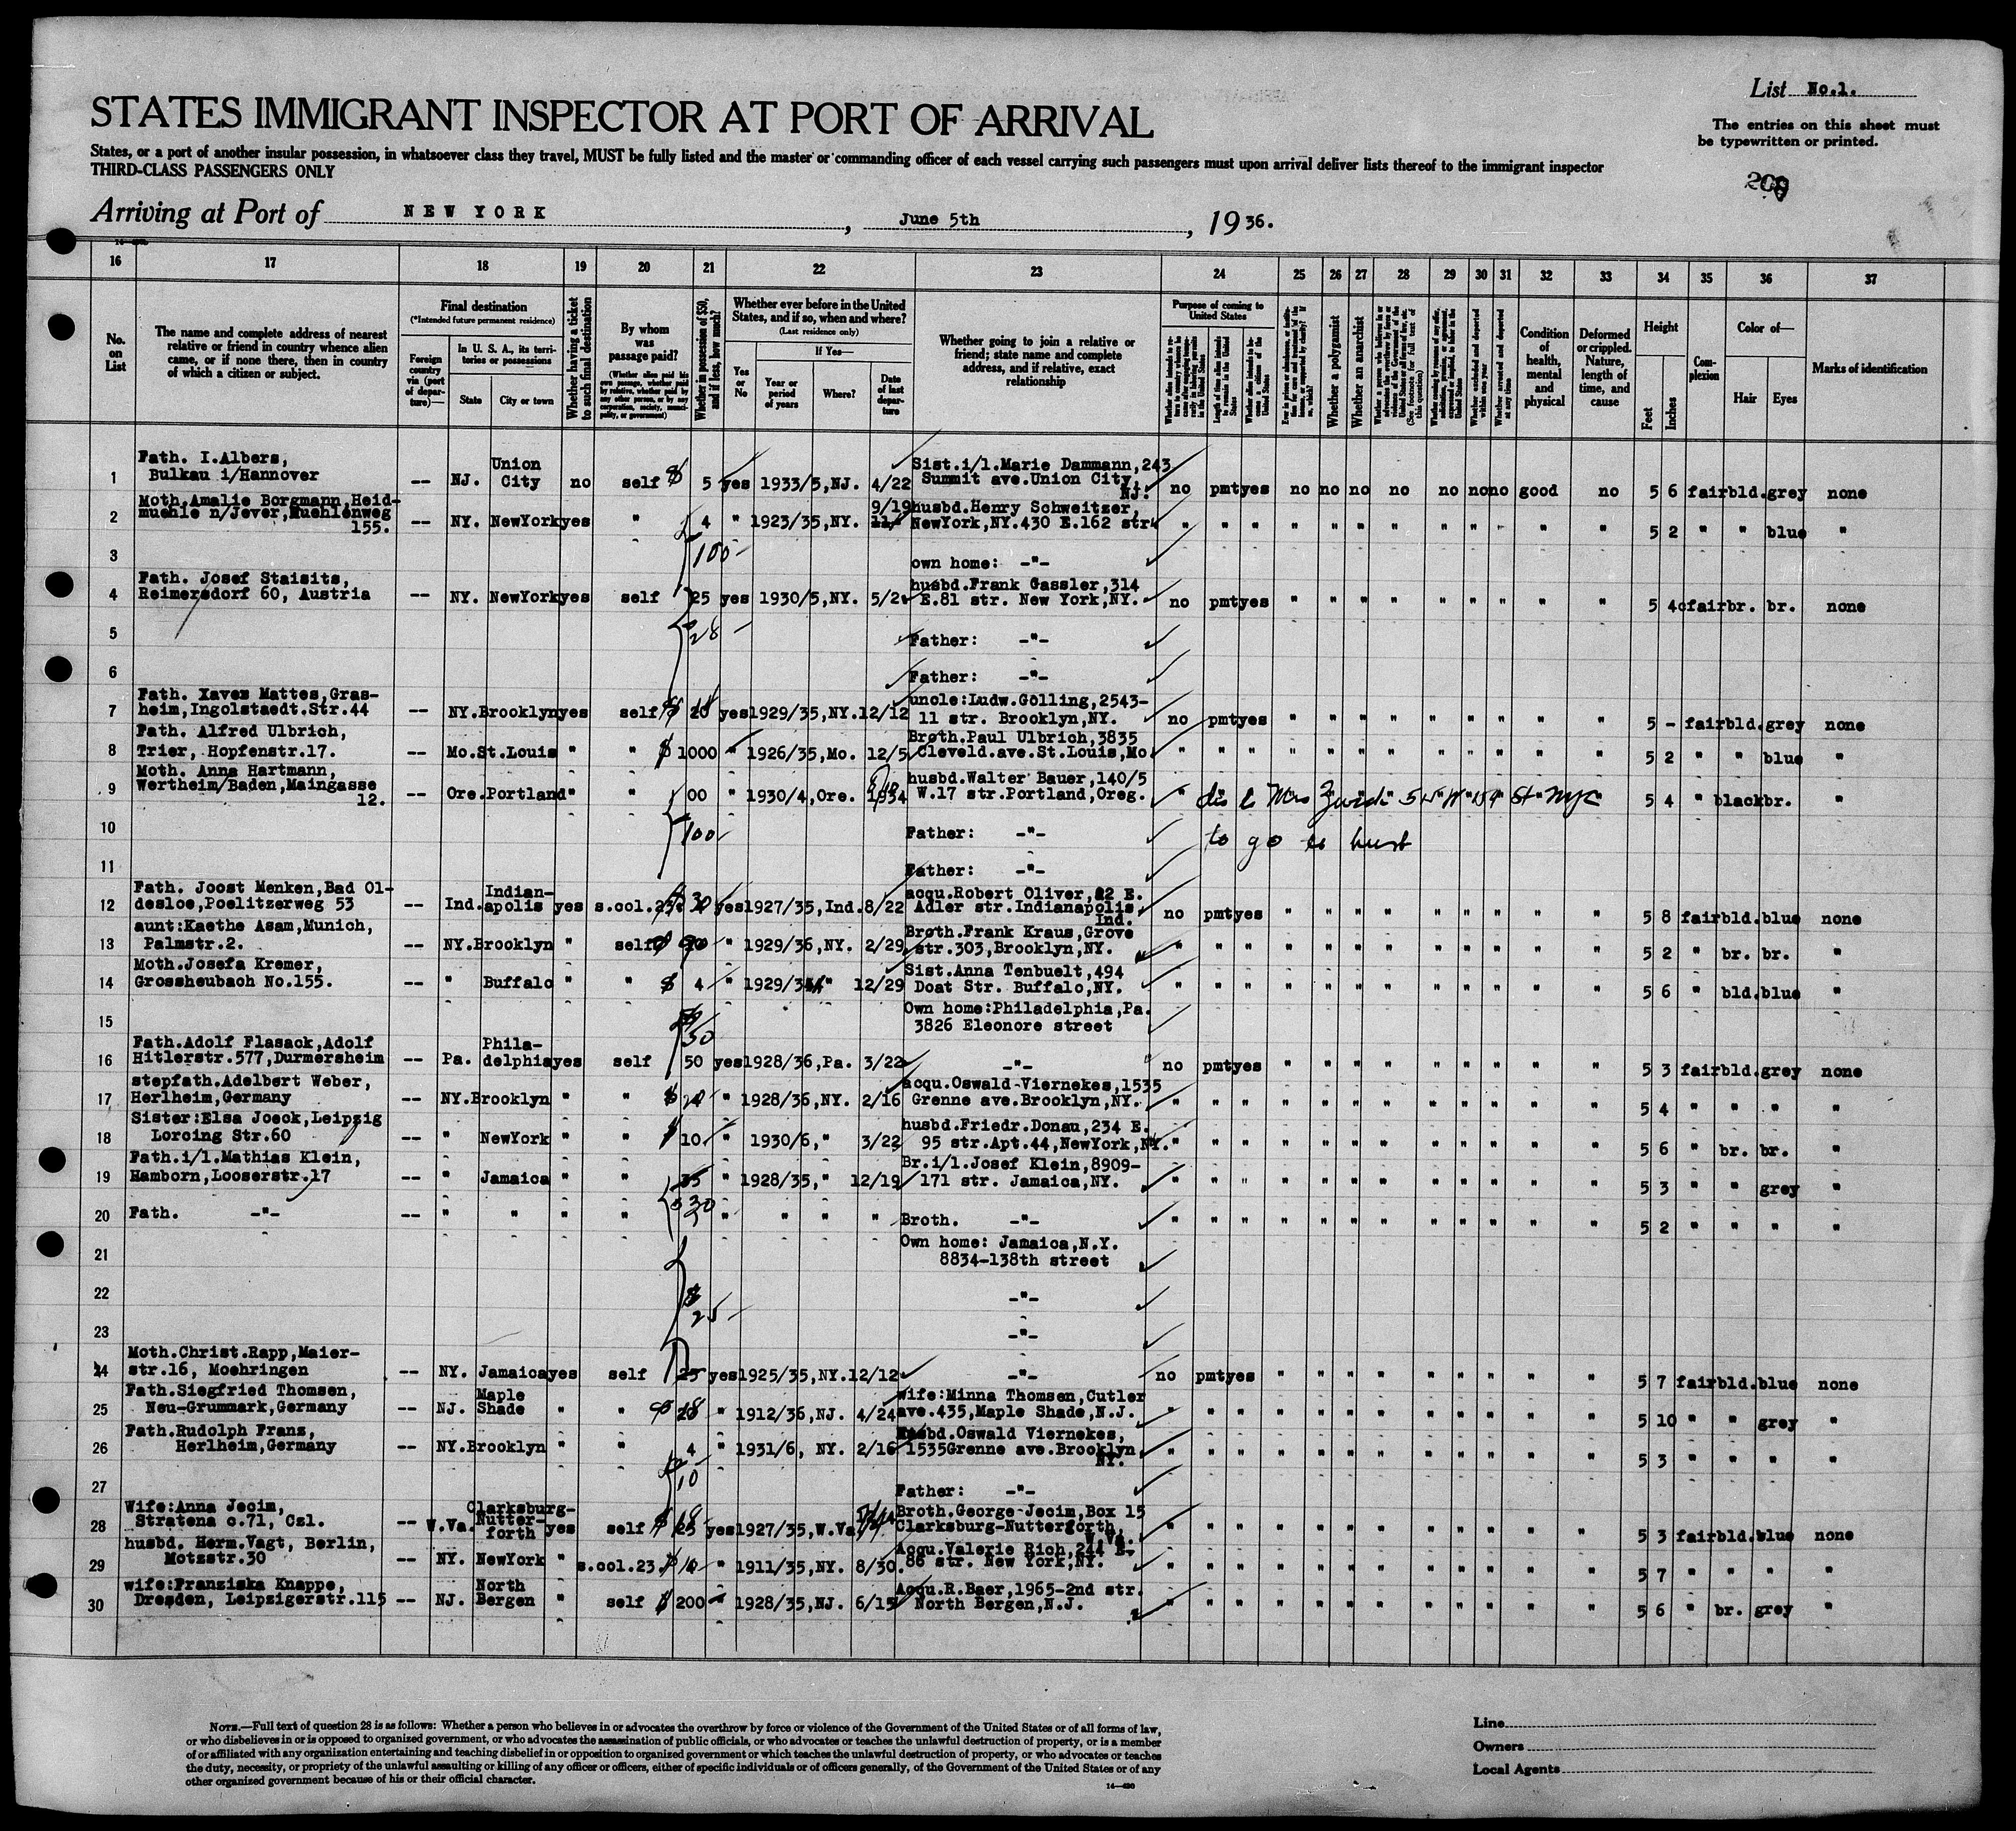 List No.1.
STATES IMMIGRANT INSPECTOR AT PORT OF ARRIVAL
The entries on this sheet must
be typewritten or printed.
States, or a port of another insular possession, in whatsoever class they travel, MUST be fully listed and the master or commanding officer of each vessel carrying such passengers must upon arrival deliver lists thereof to the immigrant inspector
THIRD-CLASS PASSENGERS ONLY
Arriving at Port of NEW YORK, June 5th, 1936.
16 17 18 19 20 21 22 23 24 25 26 27 28 29 30 31 32 33 34 35 36 37
No. on List
The name and complete address of nearest
relative or friend in country whence alien
came, or if none there, then in country
of which a citizen or subject.
Final destination
(*Intended future permanent residence)
Foreign country via (port of departure)—
In U. S. A., its territories or possessions
State
City or town
Whether having a ticket to such final destination
By whom was passage paid?
(Whether alien paid his own passage, whether paid by relative, whether paid by any other person, or by any corporation, society, municipality, or government)
Whether in possession of $50, and if less, how much?
Whether ever before in the United States, and if so, when and where?
(Last residence only)
Yes or No
If Yes—
Year or period of years
Where?
Date of last departure
Whether going to join a relative or
friend; state name and complete
address, and if relative, exact
relationship
Purpose of coming to United States
Length of time alien intends to remain in the United States
Whether alien intends to become a citizen of the United States
Whether a polygamist
Whether an anarchist
(See footnote for full text of this question)
Whether excluded and deported within one year
Whether arrested and deported at any time
Condition of health, mental and physical
Deformed or crippled. Nature, length of time, and cause
Height
Feet
Inches
Complexion
Color of—
Hair
Eyes
Marks of identification
1 Father. I.Albers, Bulkau i/Hannover -- NJ. Union City no self $ 5 yes 1933/5,NJ. 4/22 Sist.i/l.Marie Dammann,243 Summit ave.Union City, NJ. no pmt yes no no no no no no no good no 5 6 fair bld. grey none
2 Moth.Amalie Borgmann,Heidmuehle n/Jever,Muehlenweg 155. -- NY. NewYork yes " 4 " 1923/35,NY. 9/19 husbd.Henry Schweitzer, NewYork,NY.430 E.162 str. " " " " " " " " " " " " 5 2 " " blue "
3 100- own home: -"-
4 Fath. Josef Staisits, Reimersdorf 60, Austria -- NY. NewYork yes self 25 yes 1930/5,NY. 5/2 husbd.Frank Gassler,314 E.81 str. New York,NY. no pmt yes " " " " " " " " " 5 4 fair br. br. none
5 28- Father: -"-
6 Father: -"-
7 Fath. Xaver Mattes,Grasheim,Ingolstaedt.Str.44 -- NY. Brooklyn yes self $ 20 yes 1929/35,NY. 12/12 uncle:Ludw.Golling,2543- 11 str. Brooklyn,NY. no pmt yes " " " " " " " " " 5 - fair bld. grey none
8 Fath. Alfred Ulbrich, Trier, Hopfenstr.17. -- Mo. St.Louis " " $ 1000 " 1926/35,Mo. 12/5 Broth.Paul Ulbrich,3835 Cleveld.ave.St.Louis,Mo. " " " " " " " " " " " " 5 2 " " blue "
9 Moth. Anna Hartmann, Wertheim/Baden,Maingasse 12. -- Ore. Portland " " 00 " 1930/4,Ore. 1934 husbd.Walter Bauer,140/5 W.17 str.Portland,Oreg. " dis to Mrs St NYC 5 4 " black br.
10 100 Father: -"- to go to husb
11 Father: -"-
12 Fath. Joost Menken,Bad Oldesloe,Poelitzerweg 53 -- Ind. Indianapolis yes s.col. 30 yes 1927/35,Ind. 8/22 acqu.Robert Oliver,22 E. Adler str.Indianapolis, Ind. no pmt yes " " " " " " " " " 5 8 fair bld. blue none
13 aunt:Kaethe Asam,Munich, Palmstr.2. -- NY. Brooklyn " self $ 90 " 1929/36,NY. 2/29 Broth.Frank Kraus,Grove str.303,Brooklyn,NY. " " " " " " " " " " " " 5 2 " br. br. "
14 Moth.Josefa Kremer, Grossheubach No.155. -- " Buffalo " " $ 4 " 1929/3 " 12/29 Sist.Anna Tenbuelt,494 Doat Str. Buffalo,NY. " " " " " " " " " " " " 5 6 " bld. blue "
15 50 Own home:Philadelphia,Pa. 3826 Eleonore street
16 Fath.Adolf Flasack,Adolf Hitlerstr.577,Durmersheim -- Pa. Philadelphia yes self 50 yes 1928/36,Pa. 3/22 -"- no pmt yes " " " " " " " " " 5 3 fair bld. grey none
17 stepfath.Adelbert Weber, Herlheim,Germany -- NY. Brooklyn " " $ 20 " 1928/36,NY. 2/16 acqu.Oswald Viernekes,1535 Grenne ave.Brooklyn,NY. " " " " " " " " " " " " 5 4 " " " "
18 Sister:Elsa Joeck,Leipzig Lorcing Str.60 -- " NewYork " " $ 10 " 1930/6, " 3/22 husbd.Friedr.Donau,234 E. 95 str.Apt.44,NewYork,NY. " " " " " " " " " " " " 5 6 " br. br. "
19 Fath.i/l.Mathias Klein, Hamborn,Looserstr.17 -- " Jamaica " " 35 " 1928/35, " 12/19 Br.i/l.Josef Klein,8909- 171 str. Jamaica,NY. " " " " " " " " " " " " 5 3 " " grey "
20 Fath. -"- -- " " " " $30 " " " " Broth. -"- " " " " " " " " " " " " 5 2 " " " "
21 Own home: Jamaica,N.Y. 8834-138th street
22 $ 25- -"-
23 -"-
24 Moth.Christ.Rapp,Maierstr.16, Moehringen -- NY. Jamaica yes self 25 yes 1925/35,NY. 12/12 -"- no pmt yes " " " " " " " " " 5 7 fair bld. blue none
25 Fath.Siegfried Thomsen, Neu-Grummark,Germany -- NJ. Maple Shade " " $ 28 " 1912/36,NJ. 4/24 wife:Minna Thomsen,Cutler ave.435,Maple Shade,N.J. " " " " " " " " " " " " 5 10 " " grey "
26 Fath.Rudolph Franz, Herlheim,Germany -- NY. Brooklyn " " 4 " 1931/6, NY. 2/16 husbd.Oswald Viernekes, 1535Grenne ave.Brooklyn, NY. " " " " " " " " " " " " 5 3 " " " "
27 10 Father: -"-
28 Wife:Anna Jecim, Stratena c.71, Czl. -- W.Va. Clarksburg-Nutterforth yes self $ 25 yes 1927/35,W.Va. Broth.George Jecim,Box 15 Clarksburg-Nutterforth, W.Va. " " " " " " " " " " " " 5 3 fair bld. blue none
29 husbd. Herm.Vagt, Berlin, Motzstr.30 -- NY. NewYork " s.col.23. $ 10 " 1911/35,NY. 8/30. Acqu.Valerie Rich,244 E. 86 str. New York,NY. " " " " " " " " " " " " 5 7 " " " "
30 wife:Franziska Knappe, Dresden, Leipzigerstr.115 -- NJ. North Bergen " self $ 200 " 1928/35,NJ. 6/15 Acqu.R.Baer,1965-2nd str. North Bergen,N.J. " " " " " " " " " " " " 5 6 " br. grey "
NOTE.—Full text of question 28 is as follows: Whether a person who believes in or advocates the overthrow by force or violence of the Government of the United States or of all forms of law,
or who disbelieves in or is opposed to organized government, or who advocates the assassination of public officials, or who advocates or teaches the unlawful destruction of property, or is a member
of or affiliated with any organization entertaining and teaching disbelief in or opposition to organized government or which teaches the unlawful destruction of property, or who advocates or teaches
the duty, necessity, or propriety of the unlawful assaulting or killing of any officer or officers, either of specific individuals or of officers generally, of the Government of the United States or of any
other organized government because of his or their official character.
14—430
Line
Owners
Local Agents